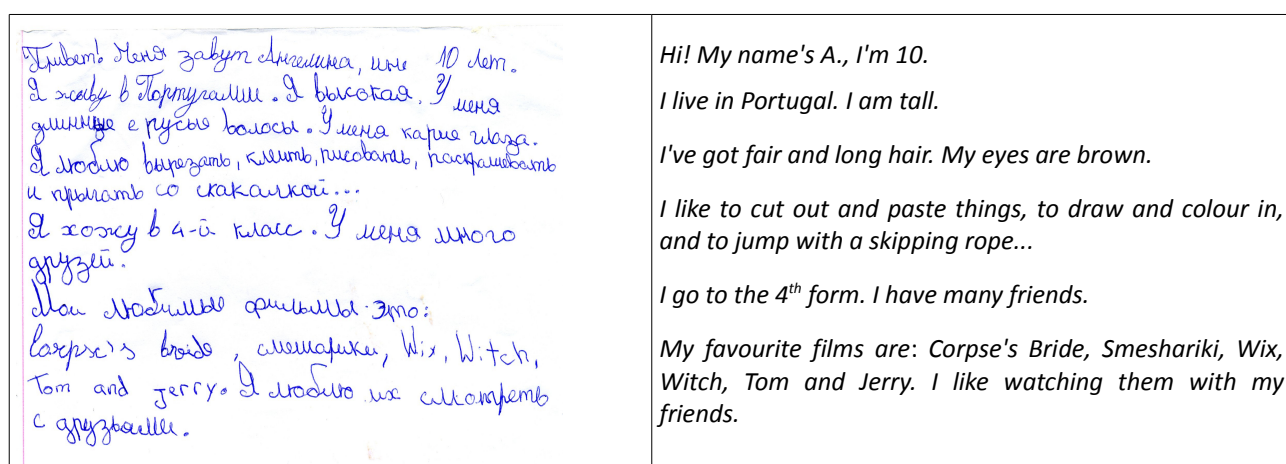 Привет! Меня завут Ангелина, мне 10 лет.
Я живу в Португалии. Я высокая. У меня
длинные е русые волосы. У меня карие глаза.
Я люблю вырезать, клеить, рисовать, раскрашивать
и прыгать со скакалкой...
Я хожу в 4-й класс. У меня много
друзей.
Мои любимые фильмы-это:
Corpse's bride, смешарики, Wix, Witch,
Tom and Jerry. Я люблю их смотреть
с друзьями.
Hi! My name's A., I'm 10.
I live in Portugal. I am tall.
I've got fair and long hair. My eyes are brown.
I like to cut out and paste things, to draw and colour in,
and to jump with a skipping rope...
I go to the 4th form. I have many friends.
My favourite films are: Corpse's Bride, Smeshariki, Wix,
Witch, Tom and Jerry. I like watching them with my
friends.